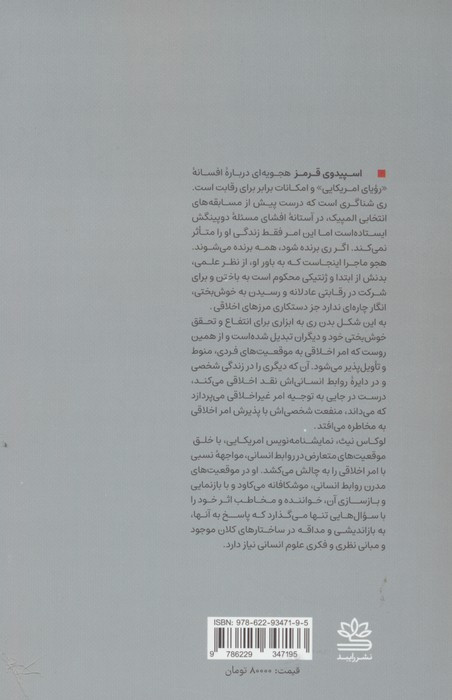 اسپیدوی قرمز هجویه‌ای دربارهٔ افسانهٔ
«رؤیای امریکایی» و امکانات برابر برای رقابت است.
ری شناگری است که درست پیش از مسابقه‌های
انتخابی المپیک، در آستانهٔ افشای مسئلهٔ دوپینگش
ایستاده‌است اما این امر فقط زندگی او را متأثر
نمی‌کند. اگر ری برنده شود، همه برنده می‌شوند.
هجو ماجرا اینجاست که به باور او، از نظر علمی،
بدنش از ابتدا و ژنتیکی محکوم است به باختن و برای
شرکت در رقابتی عادلانه و رسیدن به خوش‌بختی،
انگار چاره‌ای ندارد جز دستکاری مرزهای اخلاقی.
به این شکل بدن ری به ابزاری برای انتفاع و تحقق
خوش‌بختی خود و دیگران تبدیل شده‌است و از همین
روست که امر اخلاقی به موقعیت‌های فردی، منوط
و تأویل‌پذیر می‌شود. آن که دیگری را در زندگی شخصی
و در دایرهٔ روابط انسانی‌اش نقد اخلاقی می‌کند،
درست در جایی به توجیه امر غیراخلاقی می‌پردازد
که می‌داند، منفعت شخصی‌اش با پذیرش امر اخلاقی
به مخاطره می‌افتد.
لوکاس نیث، نمایشنامه‌نویس امریکایی، با خلق
موقعیت‌های متعارض در روابط انسانی، مواجههٔ نسبی
با امر اخلاقی را به چالش می‌کشد. او در موقعیت‌های
مدرن روابط انسانی، موشکافانه می‌کاود و با بازنمایی
و بازسازی آن، خواننده و مخاطب اثر خود را
با سؤال‌هایی تنها می‌گذارد که پاسخ به آنها،
به بازاندیشی و مداقه در ساختارهای کلان موجود
و مبانی نظری و فکری علوم انسانی نیاز دارد.
ISBN: 978-622-93471-9-5
9 786229 347195
قیمت: ۸۰۰۰۰ تومان
نشر رایبد